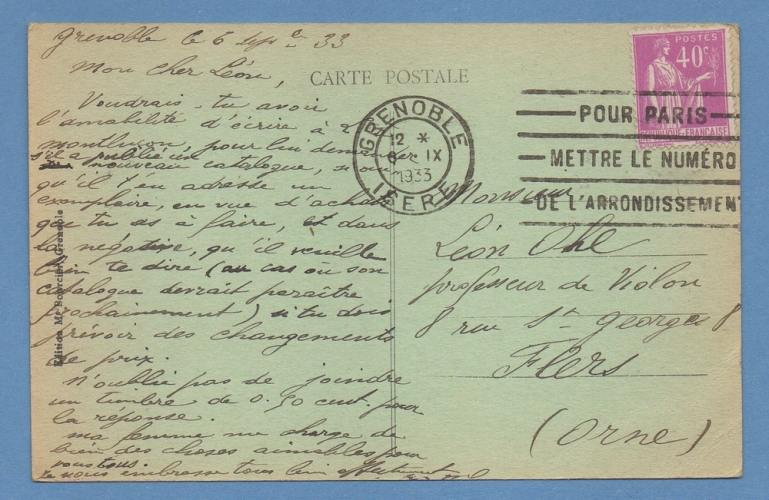 Grenoble le 6 sept. 33
Mon cher Léon,
CARTE POSTALE
Voudrais-tu avoir
l'amabilité d'écrire à
montluçon, pour lui
s'il a publié un
nouveau catalogue,
qu'il t'en adresse un
exemplaire, en vue d'achats
que tu as à faire, et dans
la négative, qu'il veuille
bien te dire (au cas où son
catalogue devrait paraître
prochainement) si tu dois
prévoir des changements
de prix.
N'oublie pas de joindre
un timbre de 0.50 cent. pour
la réponse.
ma femme me charge de
bien des choses aimables pour
vous tous.
Je vous embrasse tous bien
Edition
Grenoble
GRENOBLE
12 *
6 IX
1933
ISERE
POSTES
40c
REPUBLIQUE FRANÇAISE
POUR PARIS
METTRE LE NUMÉRO
DE L'ARRONDISSEMEN
Monsieur
Léon
professeur de Violon
8 rue St Georges 8
Flers
(Orne)